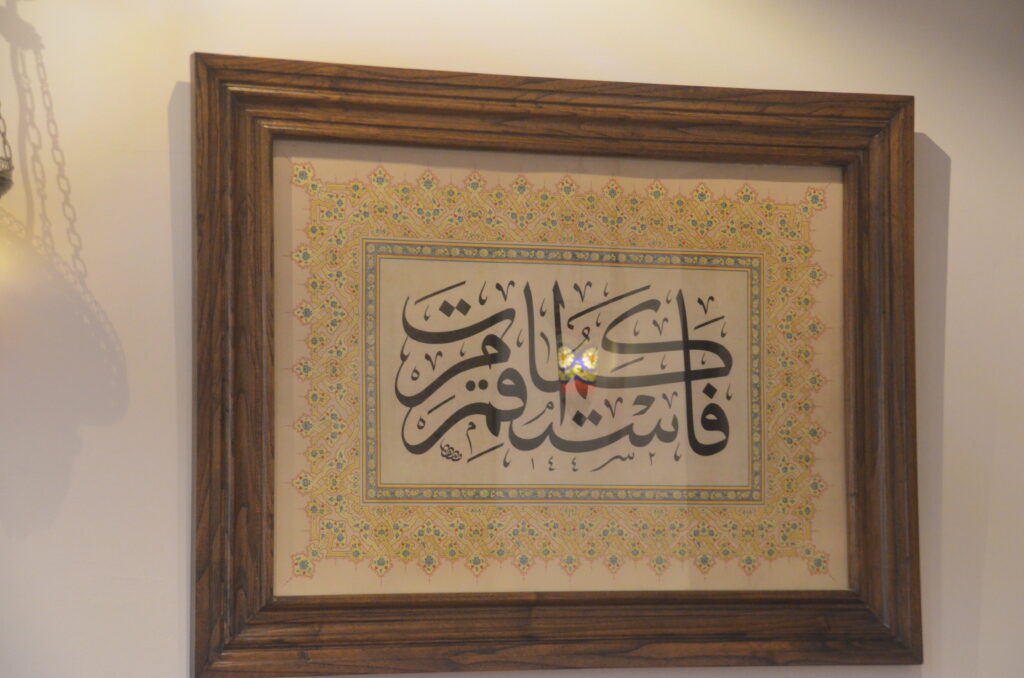 فاستقم كما أمرت
١٤٤٢